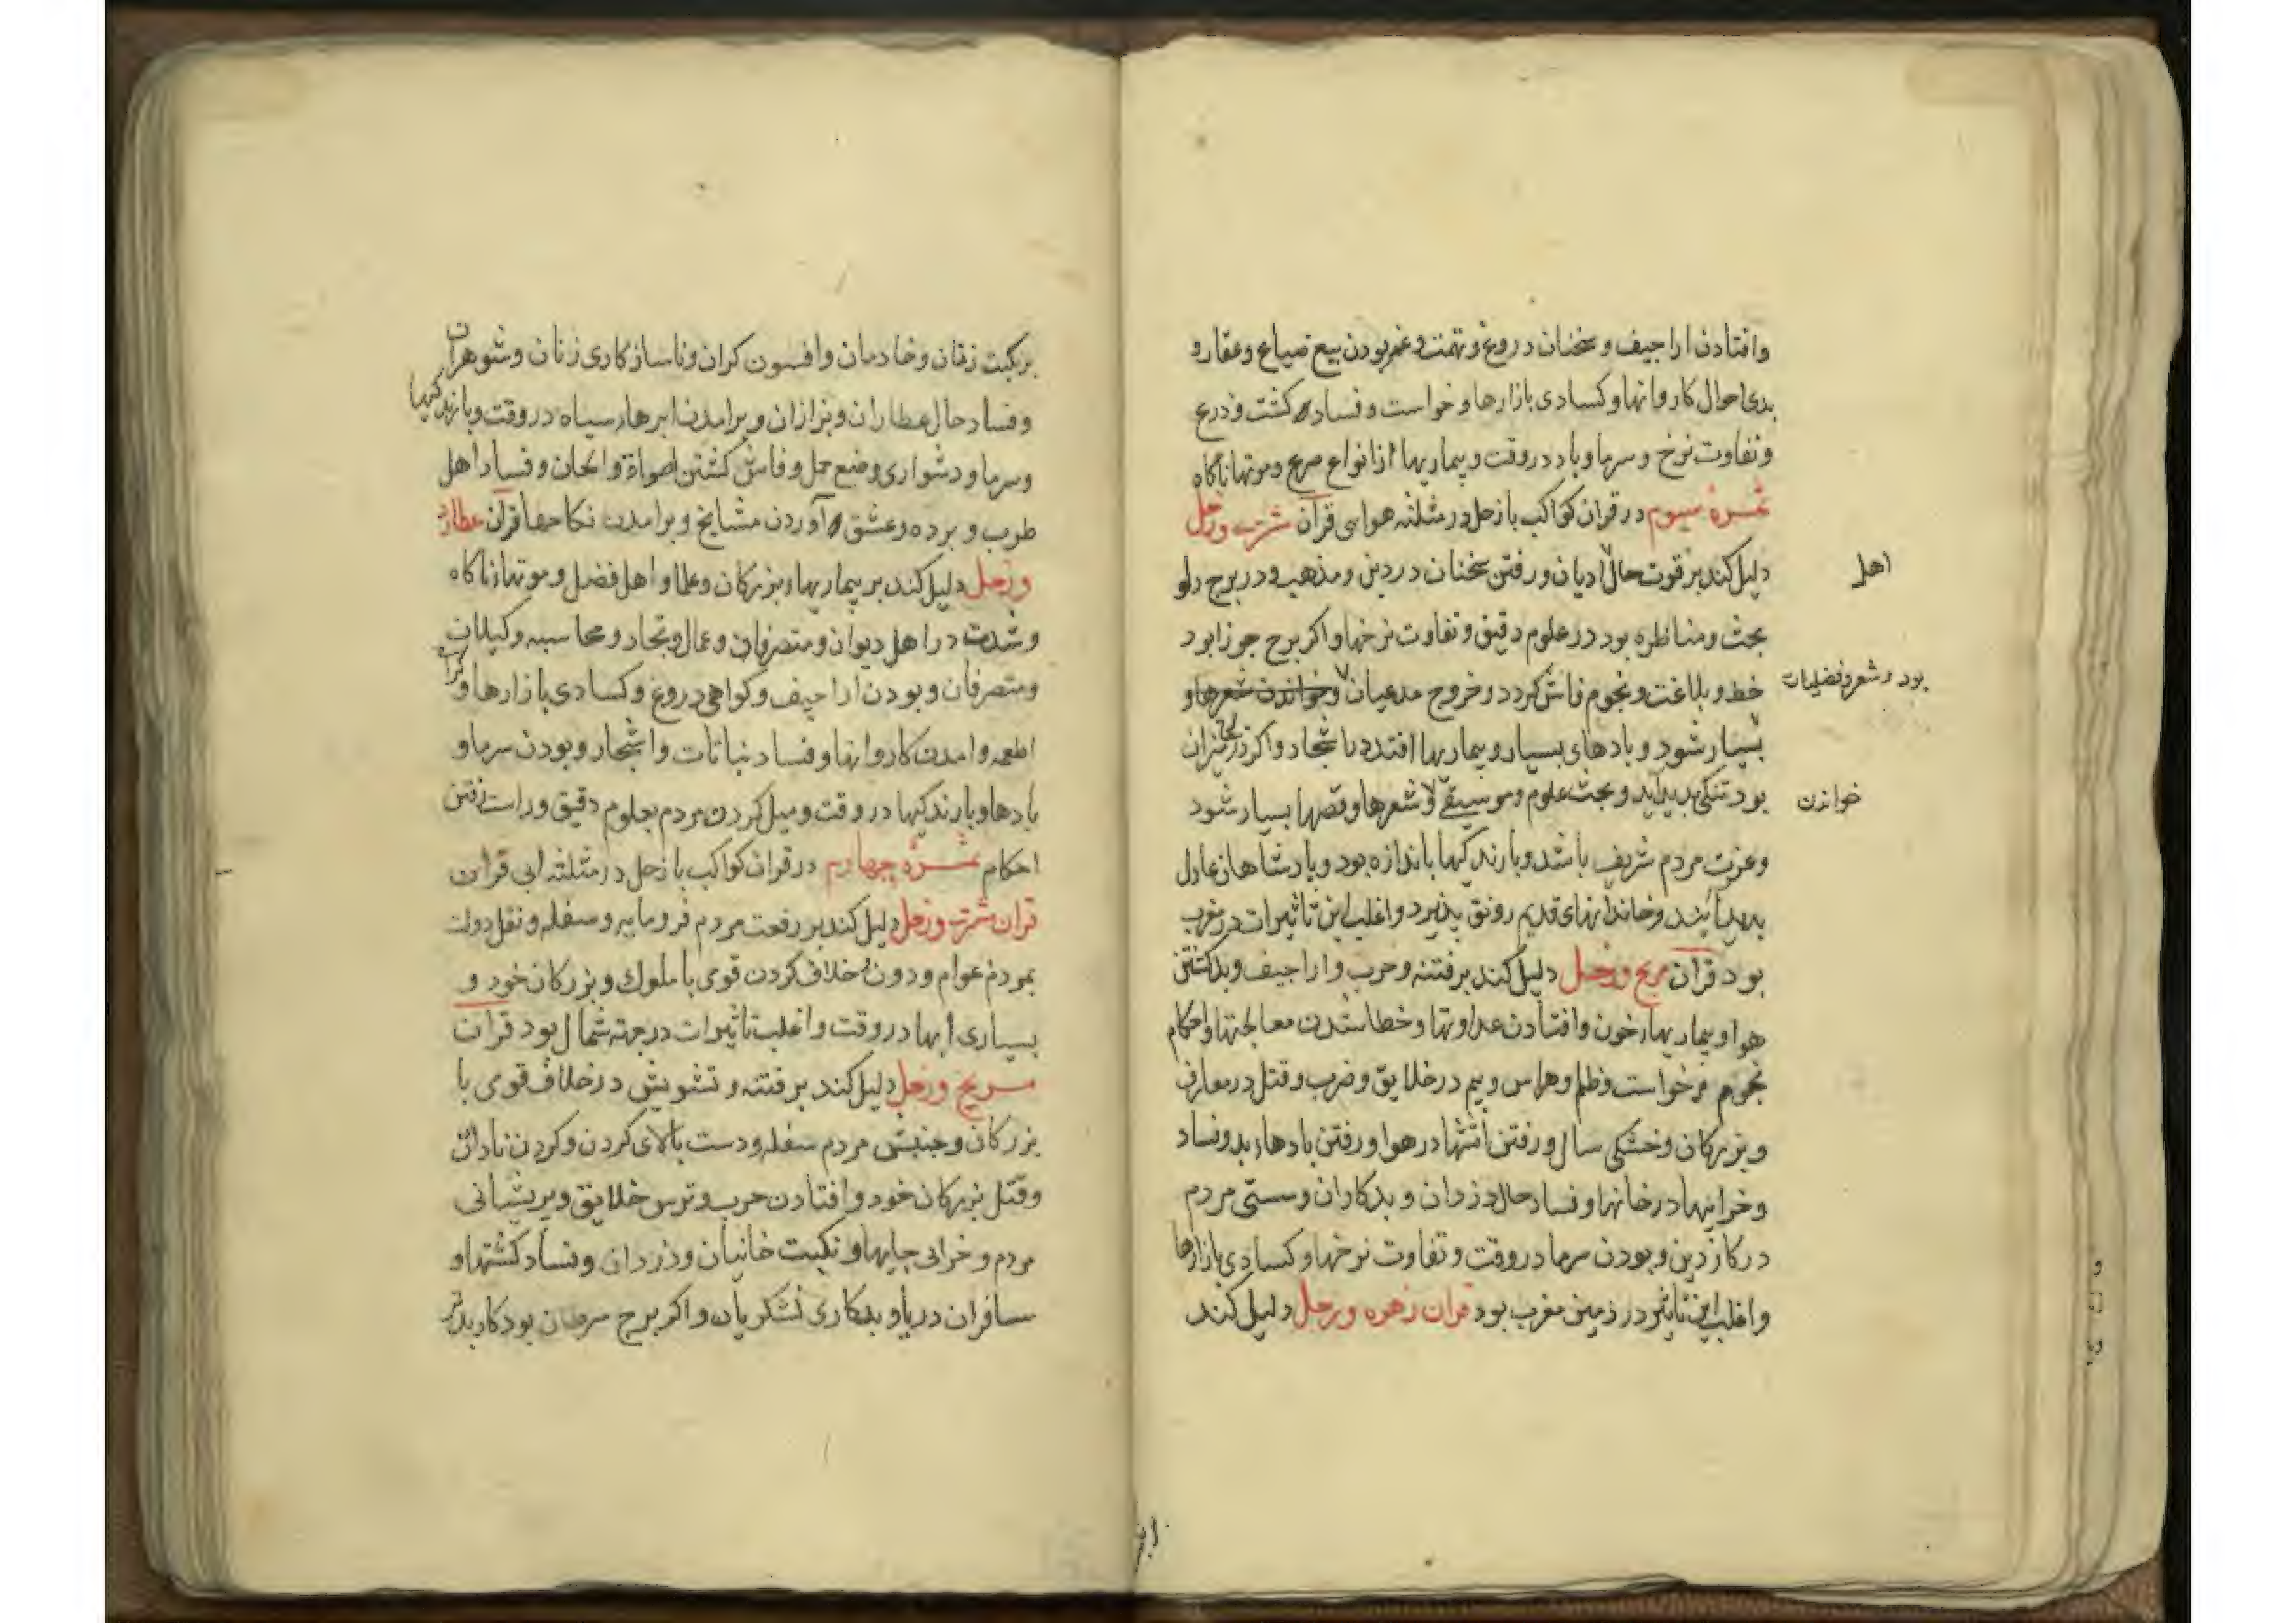 وافتادن اراجیف و سخنان دروغ و تهمت و بودن بیع ضیاع وعقار و
بدی احوال کاروانها و کسادی بازارها و خواست و فساد کشت و زرع
وتفاوت نرخ و سرما و باد در وقت و بیماریها از انواع و موتها ناکاه
ثمره سیوم در قران کواکب بازحل در مثلثه هوایی قران مشتری و زحل
دلیل کند بر قوت حال ادیان و رفتن سخنان در دین و مذهب و در برج دلو
اهل
بحث و مناظره بود در علوم دقیق و تفاوت نرخها و اکر برج جوزا بود
خط و بلاغت و نجوم فاش کردد و خروج مدعیان و خواندن شعرها و
بود و شعر و فضلیات
بسیار شود و بادهای بسیار و بیماریها افتد در اشجار و اکر در میزان
بود تنکی بدید آید و بحث علوم و موسیقی و شعرها و قصها بسیار شود
خواندن
وعزت مردم شریف باشد و بارندکیها باندازه بود و پادشاهان عادل
بدید آیند و خاندانهای قدیم رونق پذیرد و اغلب این تاثیرات در مغرب
بود قران مریخ و زحل دلیل کند بر فتنه و حرب و اراجیف و بد کشتن
هوا و بیماریهاء خون و افتادن عداوتها و خطا شدن معالجتها و احکام
نجوم و خواست و ظلم و هراس و بیم در خلایق و ضرب و قتل در معارف
و بزرکان و خشکی سال و رفتن آتشها در هوا و رفتن بادهاء بد و فساد
و خرابیها در خانها و فساد حال دزدان و بدکاران و سستی مردم
در کار دین و بودن سرما در وقت و تفاوت نرخها و کسادی بازارها
و اغلب این تاثیر در زمین مغرب بود قران زهره و زحل دلیل کند
بر نکبت زنان و خادمان و افسون کران و ناسازکاری زنان و شوهران
و فساد حال عطاران و بزازان و برامدن ابرهاء سیاه در وقت و بارندکیها
و سرما و دشواری وضع حمل و فاش کشتن اصواة و الحان و فساد اهل
طرب و برده و عشق آوردن مشایخ و برامدن نکاحها قران عطارد
و زحل دلیل کند بر بیماریهاء بزرکان و علما و اهل فضل و موتها ناکاه
و شدت در اهل دیوان و متصرفان و عمال و تجار و محاسبه وکیلان
و متصرفان و بودن اراجیف و کواهی دروغ و کسادی بازارها و
اطعمه و امدن کاروانها و فساد نباتات و اشجار و بودن سرما و
بادها و بارندکیها در وقت و میل کردن مردم بعلوم دقیق و راست رفتن
احکام ثمره چهارم در قران کواکب بازحل در مثلثه ابی قران
قران مشتری و زحل دلیل کند بر رفعت مردم فرومایه و سفله و نقل دولت
بمردم عوام و دون و خلاف کردن قوی با ملوک و بزرکان خود و
بسیاری ابها در وقت و اغلب تاثیرات در جهة شمال بود قران
مریخ و زحل دلیل کند بر فتنه و تشویش در خلاف قوی با
بزرکان و جنبش مردم سفله و دست بالای کردن و کردن نادان
و قتل بزرکان خود و افتادن حرب و ترس خلایق و پریشانی
مردم و خرابی جایها و نکبت خانیان و دزدان و فساد کشتها و
مسافران دریا و بدکاری لشکریان و اکر برج سرطان بود کار بدتر